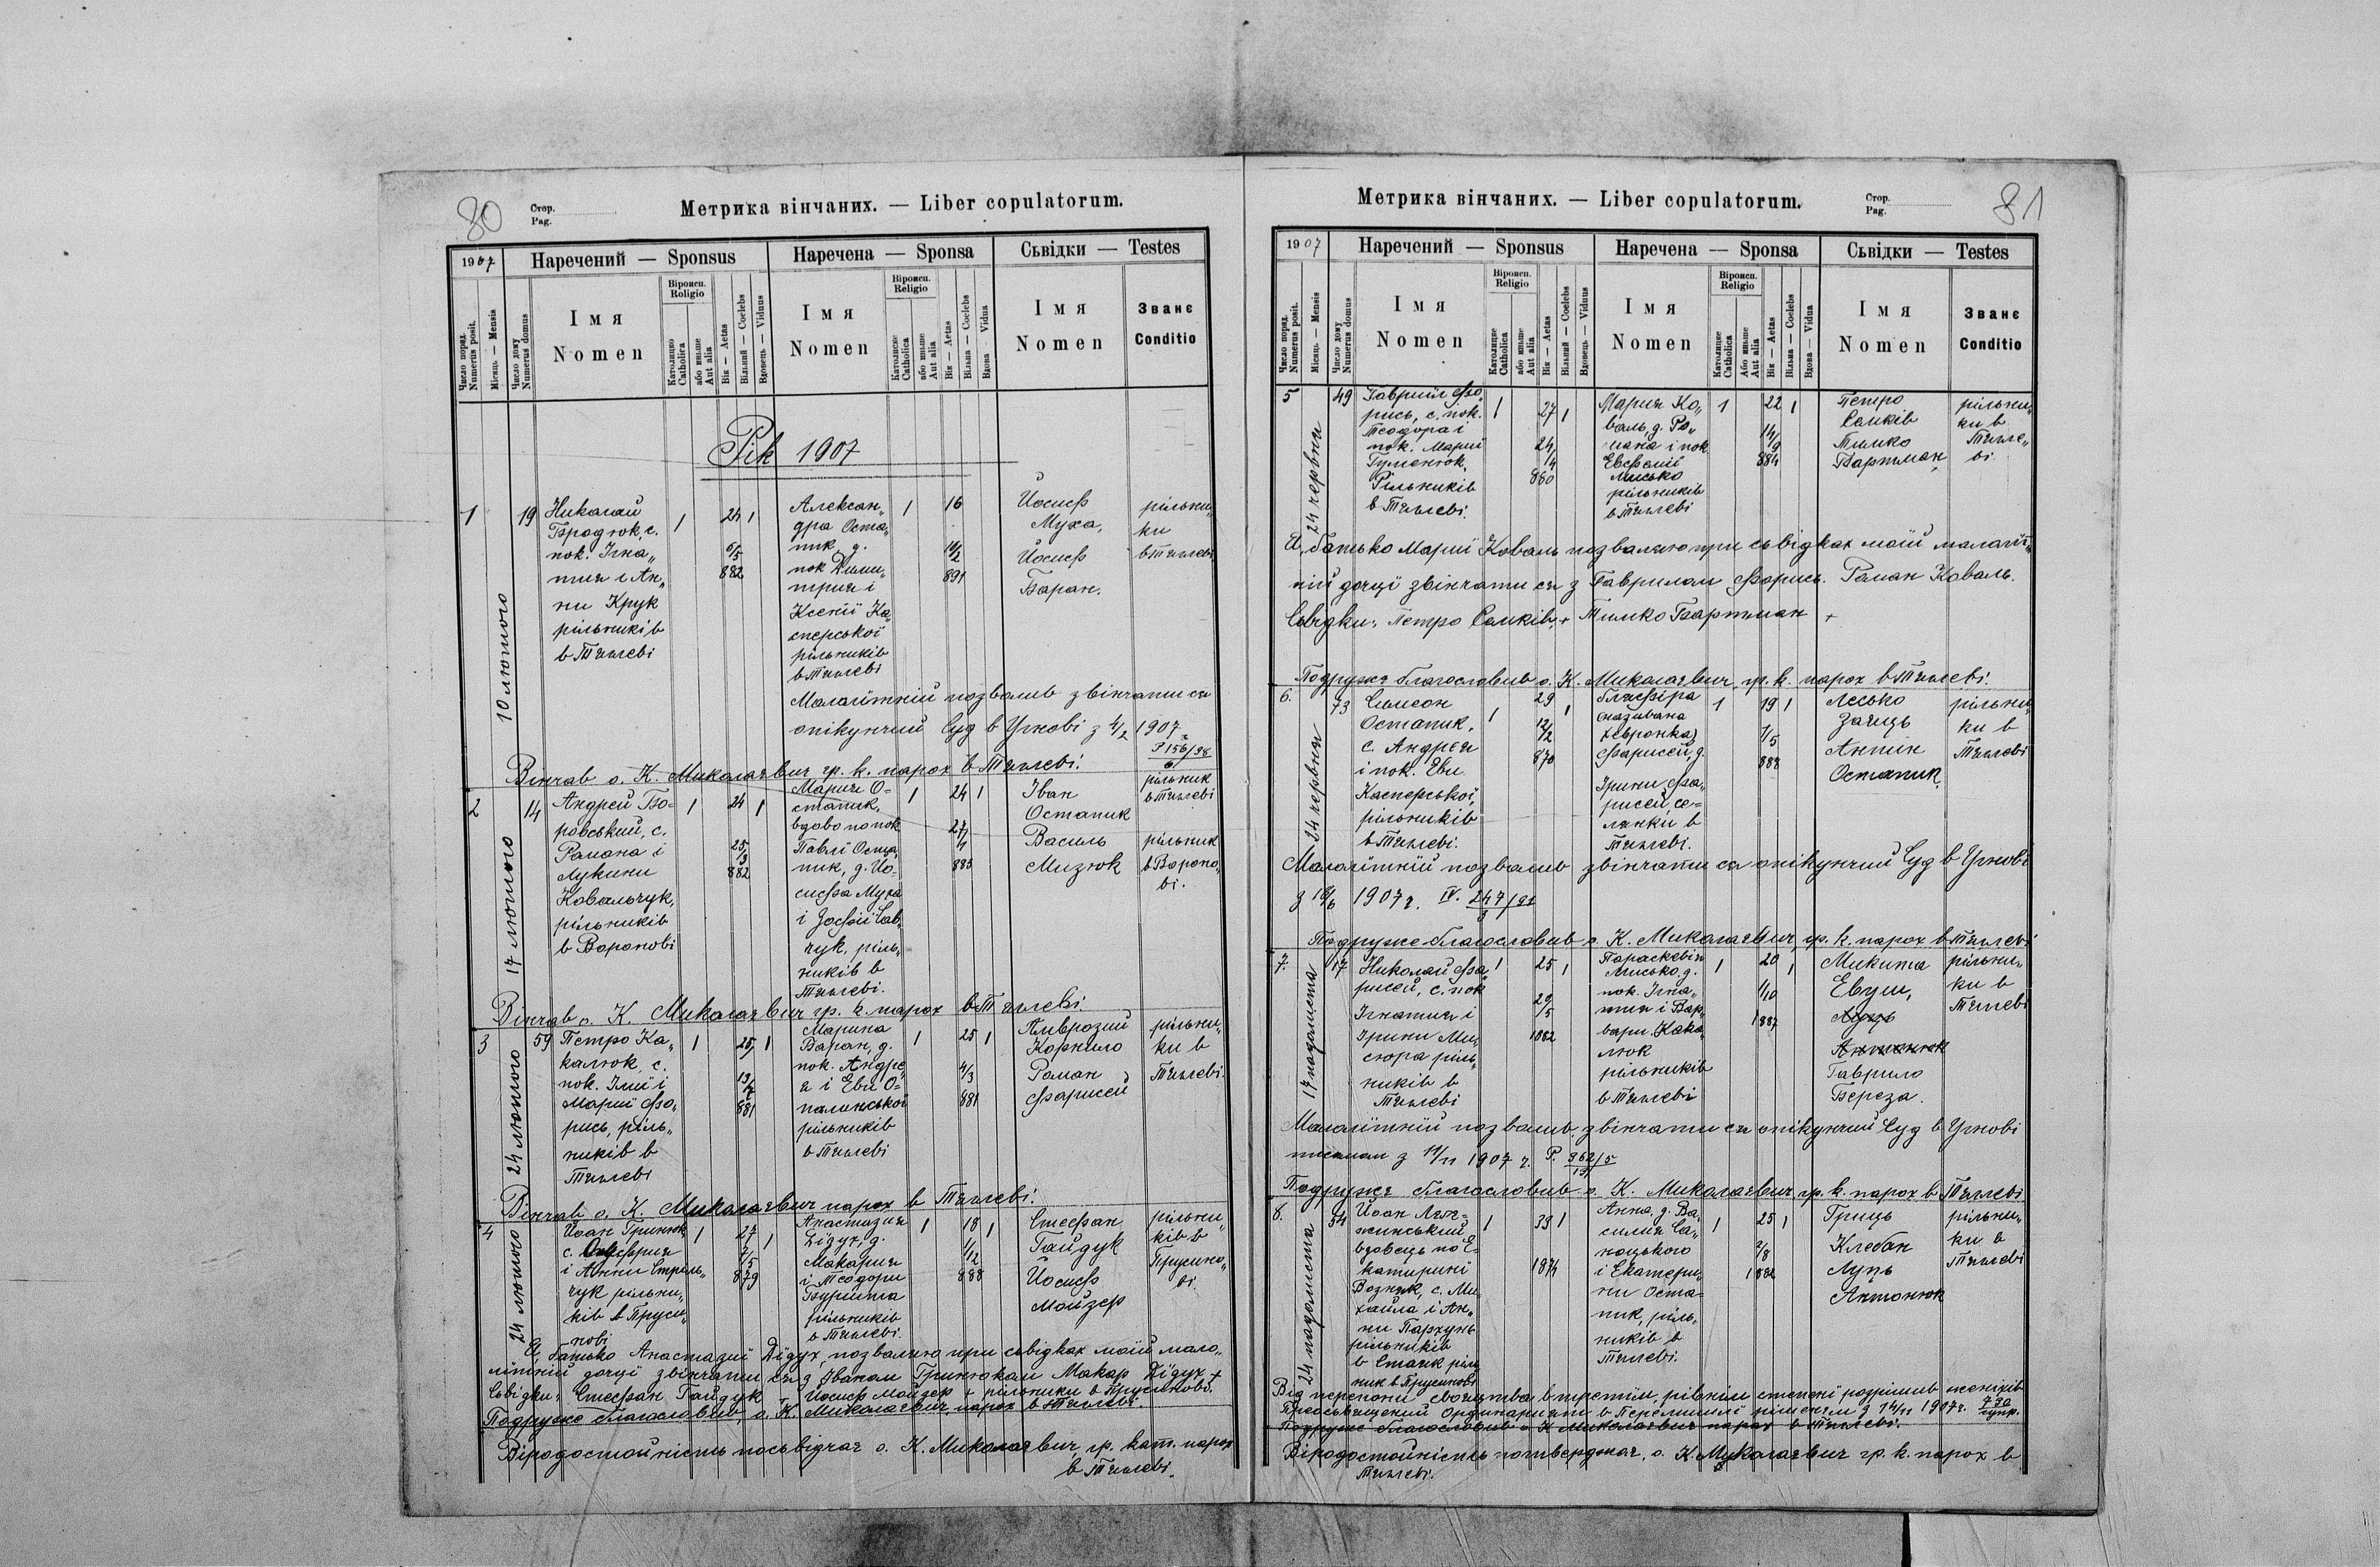 80
Стор.
Pag.
Метрика вінчаних. — Liber copulatorum.
1907
Наречений — Sponsus
Наречена — Sponsa
Сьвідки — Testes
Число поряд.
Numerus posit.
Місяць — Mensis
Число дому
Numerus domus
Імя
Nomen
Віроисп.
Religio
Католицке
Catholica
або иньше
Aut alia
Вік — Aetas
Вільний — Coelebs
Вдовець — Viduus
Імя
Nomen
Віроисп.
Religio
Католицке
Catholica
або иньше
Aut alia
Вік — Aetas
Вільна — Coelebs
Вдова — Vidua
Імя
Nomen
Званє
Conditio
Рік 1907
1
10 лютого
19
Николай
Бродюк, с.
пок. Ігна„
тия і Ан„
ни Крук
рільників
в Тяглеві
1
24 1
6/5
882
Алексан„
дра Оста„
пик, д.
пок Дими„
трия і
Ксенії Ка„
сперської
рільників
в Тяглеві
1
16
10/2
891
Йосиф
Муха,
Йосиф
Баран.
рільни„
ки
в Тяглеві
Малолїтній позволив звінчати ся
опікунчий Суд в Угнові з 4/2 1907
Р 156/98
6
Вінчав о. К. Миколаєвич гр. к. парох в Тяглеві.
2
17 лютого
14
Андрей Бо=
ровський, с.
Романа і
Лукини
Ковальчук,
рільників
в Воронові
1
24
1
25
882
Мария О=
стапик,
вдова по пок
Павлї Оста„
пик, д. Йо=
сифа Муха
і Зосфії Сав„
чук, ріль„
ників в
Тяглеві.
1
24 1
27
883
Іван
Остапик
Василь
Мизюк
рільник
в Тяглеві
рільник
в Вороно„
ві.
Вінчав о. К. Миколаєвич гр. к. парох в Тяглеві.
3
24 лютого
59
Петро Ка„
калюк, с.
пок. Ілиї і
Мариї Фо„
рись, ріль„
ників в
Тяглеві
1
25 1
13
881
Марина
Баран, д.
пок. Андре„
я і Еви О=
палинської
рільників
в Тяглеві
1
25 1
4/3
881
Амврозий
Корнило
Роман
Фарисей
рільни„
ки в
Тяглеві.
Вінчав о. К. Миколаєвич парох в Тяглеві.
4
24 лютого
Йоан Гринюк,
с. Онуфрия
і Анни Стрель„
чук рільни„
ків в Пруси„
нові
1
27
1
7/5
879
Анастазия
Дїдух, д.
Макария
і Теодори
Бурйита
рільників
в Тяглеві.
1
18 1
1/12
888
Стефан
Гайдук
Йосиф
Мойзер
рільни„
ків в
Прусино„
ві.
Я, батько Анастазиї Дїдух, позваляю при сьвідках моїй мало„
лїтній дочці звінчати ся з Іваном Гринюком Макар Дїдух +
Сьвідки: Стефан Гайдук + Йосиф Мойзер + рільники в Прусинові.
Подруже благословив, о. К. Миколаєвич, парох в Тяглеві.
Віродостойність посьвідчає о. К. Миколаєвич, гр. кат. парох
в Тяглеві.
81
Стор.
Pag.
Метрика вінчаних. — Liber copulatorum.
1907
Наречений — Sponsus
Наречена — Sponsa
Сьвідки — Testes
Число поряд.
Numerus posit.
Місяць — Mensis
Число дому
Numerus domus
Імя
Nomen
Віроисп.
Religio
Католицке
Catholica
або иньше
Aut alia
Вік — Aetas
Вільний — Coelebs
Вдовець — Viduus
Імя
Nomen
Віроисп.
Religio
Католицке
Catholica
Або иньше
Aut alia
Вік — Aetas
Вільна — Coelebs
Вдова — Vidua
Імя
Nomen
Званє
Conditio
5
24 червня
49
Гавриїл Фо„
рись, с. пок.
Теодора і
пок. Мариї
Гуменюк,
Рільників
в Тяглеві.
1
27 1
24/4
880
Мария Ко„
валь, д. Ро„
мана і пок
Евфемії
Мисько
рільників
в Тяглеві
1
22 1
14/9
884
Петро
Семків
Тимко
Бартман,
рільни„
ки в
Тягле„
ві.
Я, батько Мариї Коваль позваляю при сьвідках моїй малолїт„
ній дочці звінчати ся з Гаврилом Форись. Роман Коваль.
Сьвідки: Петро Семків + Тимко Бартман +
Подруже благословив о. К. Миколаєвич, гр. к. парох в Тяглеві.
6.
24 червня
73
Симеон
Остапик,
с. Андрея
і пок. Еви
Касперської,
рільників
в Тяглеві.
1
29
1
12/2
878
Глифіра
(називана
Хевронка)
Фарисей, д.
Ірини Фа„
рисей, се=
лянки в
Тяглеві.
1
19 1
7/5
888
Лесько
Заяць
Антін
Остапик,
рільни„
ки в
Тяглеві
Малолїтній позволив звінчати ся опікунчий Суд в Угнові
з 18/6 1907 р. IV. 247/91
Подруже благословив о. К. Миколаєвич, гр. к. парох в Тяглеві
7.
17 падолиста
17
Николай Фа„
рисей, с. пок
Ігнатия і
Ірини Ми„
сюра ріль„
ників в
Тяглеві
1
25 1
29/5
1882
Параскевія
Мисько, д.
пок. Ігна„
тия і Вар„
вари Кака„
люк
рільників
в Тяглеві
1
20
1
1/10
1887
Микита
Евуш,
Луць
Антонюк
Гаврило
Береза.
рільни„
ки в
Тяглеві
Малолїтній позволив звінчати ся опікунчий Суд в Угнові
письмом з 11/11 1907 р. Р. 862/5
Подруже благословив о. К. Миколаєвич, гр. к. парох в Тяглеві.
8.
24 падолиста
54
Йоан
жинський
вдовець по Е=
катирині
Возняк, с. Ми
хаїла і Ан„
ни Пархунь
рільників
в
ник в Прусинові
1
33 1
1874
Анна, д. Ва„
силия Са„
ноцького
і Екатери„
ни Оста=
пик, ріль„
ників в
Тяглеві.
1
25 1
2/8
1882
Гриць
Клебан
Луць
Антонюк
рільни„
ки в
Тяглеві
Від перепони свояцтва в третїм рівнім степені розрішив женіхів
Преосьвященний Ординарият в Перемишлї рішенєм з 14/11 1907 р.
Подруже благословив о. К. Миколаєвич парох в Тяглеві.
Віродостойність потверджає, о. К. Миколаєвич гр. к. парох в
Тяглеві.